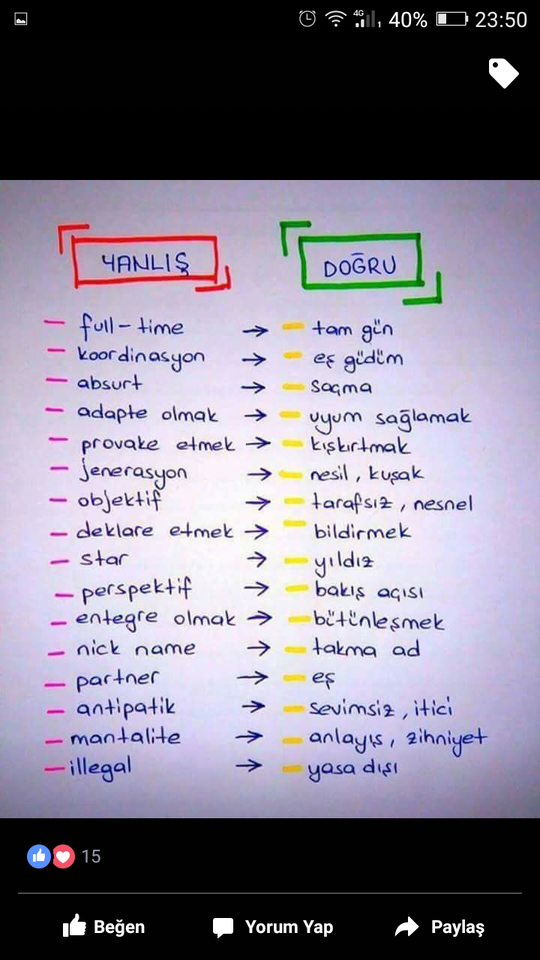 4G 40% 23:50
YANLIŞ DOĞRU
full-time → tam gün
koordinasyon → eş güdüm
absurt → saçma
adapte olmak → uyum sağlamak
provake etmek → kışkırtmak
jenerasyon → nesil, kuşak
objektif → tarafsız, nesnel
deklare etmek → bildirmek
star → yıldız
perspektif → bakış açısı
entegre olmak → bütünleşmek
nick name → takma ad
partner → eş
antipatik → sevimsiz, itici
mantalite → anlayış, zihniyet
illegal → yasa dışı
15
Beğen Yorum Yap Paylaş